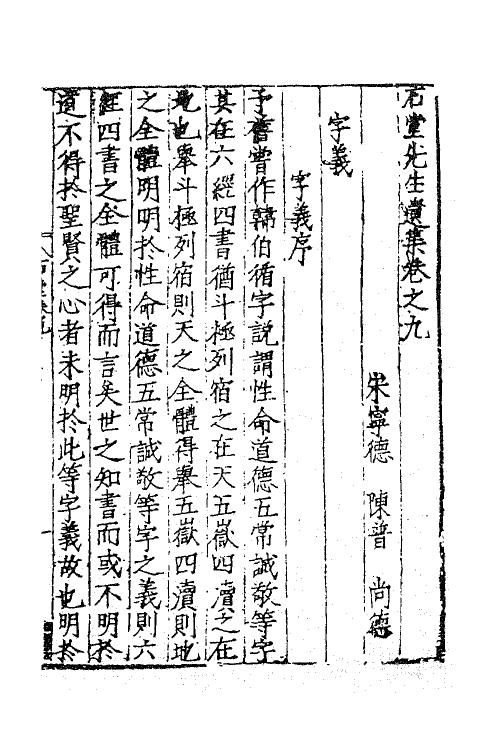 石堂先生遺集卷之九
宋寧德 陳普 尚德
字義
字義序
予舊嘗作韓伯循字說謂性命道德五常誠敬等字
其在六經四書猶斗極列宿之在天五嶽四瀆之在
地也舉斗極列宿則天之全體得舉五嶽四瀆則地
之全體明明於性命道德五常誠敬等字之義則六
經四書之全體可得而言矣世之知書而或不明於
道不得於聖賢之心者未明於此等字義故也明於